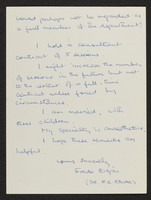 would perhaps not be regarded as
a full member of the department.
I hold a consultant
contract of 5 sessions
I might increase the number
of sessions in the future but not
to the extent of a full-time
contract unless forced by
circumstances
I am married, with
three children
My speciality is anaesthetics
I hope these remarks are
helpful
Yours sincerely